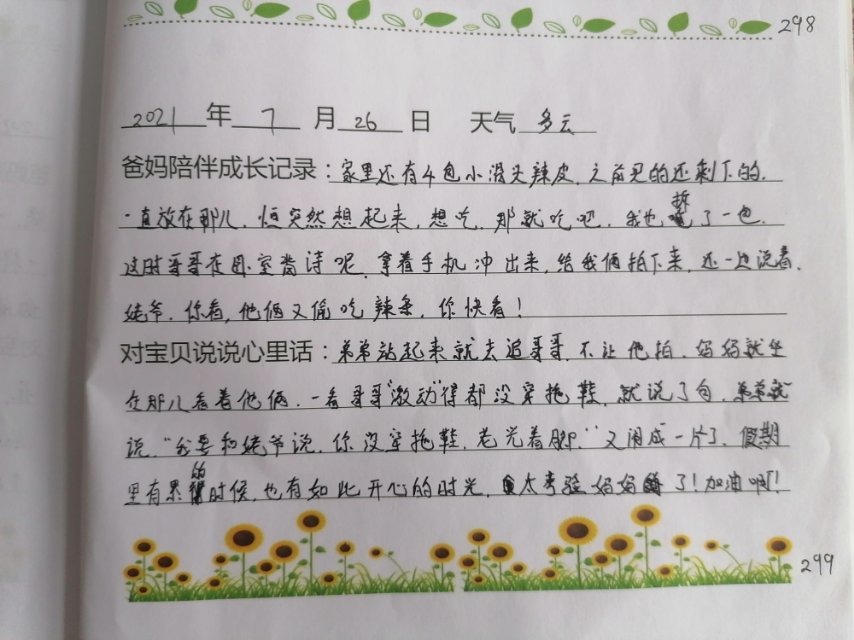 298
2021年7月26日 天气多云
爸妈陪伴成长记录：家里还有4包小滑头辣皮，之前见的还剩下的，
一直放在那儿，恒突然想起来，想吃，那就吃吧，我也拆了一包，
这时哥哥在卧室背诗呢，拿着手机冲出来，给我俩拍下来，还一边说着，
姥爷，你看，他俩又偷吃辣条，你快看！
对宝贝说说心里话：弟弟站起来就去追哥哥，不让他拍，妈妈就坐
在那儿看着他俩，一看哥哥"激动"得都没穿拖鞋，就说了句，弟弟就
说，"我要和姥爷说，你没穿拖鞋，老光着脚，"又闹成一片了，假期
里有累的时候，也有如此开心的时光，太考验妈妈了！加油啊！
299